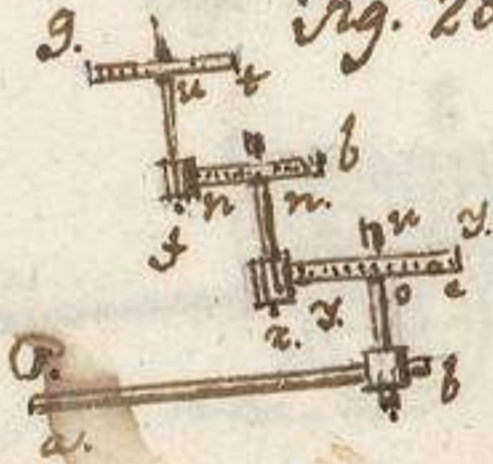 g.
Fig. 20
u t
b
n n.
f
u y.
o e
z. y.
P.
b
a.